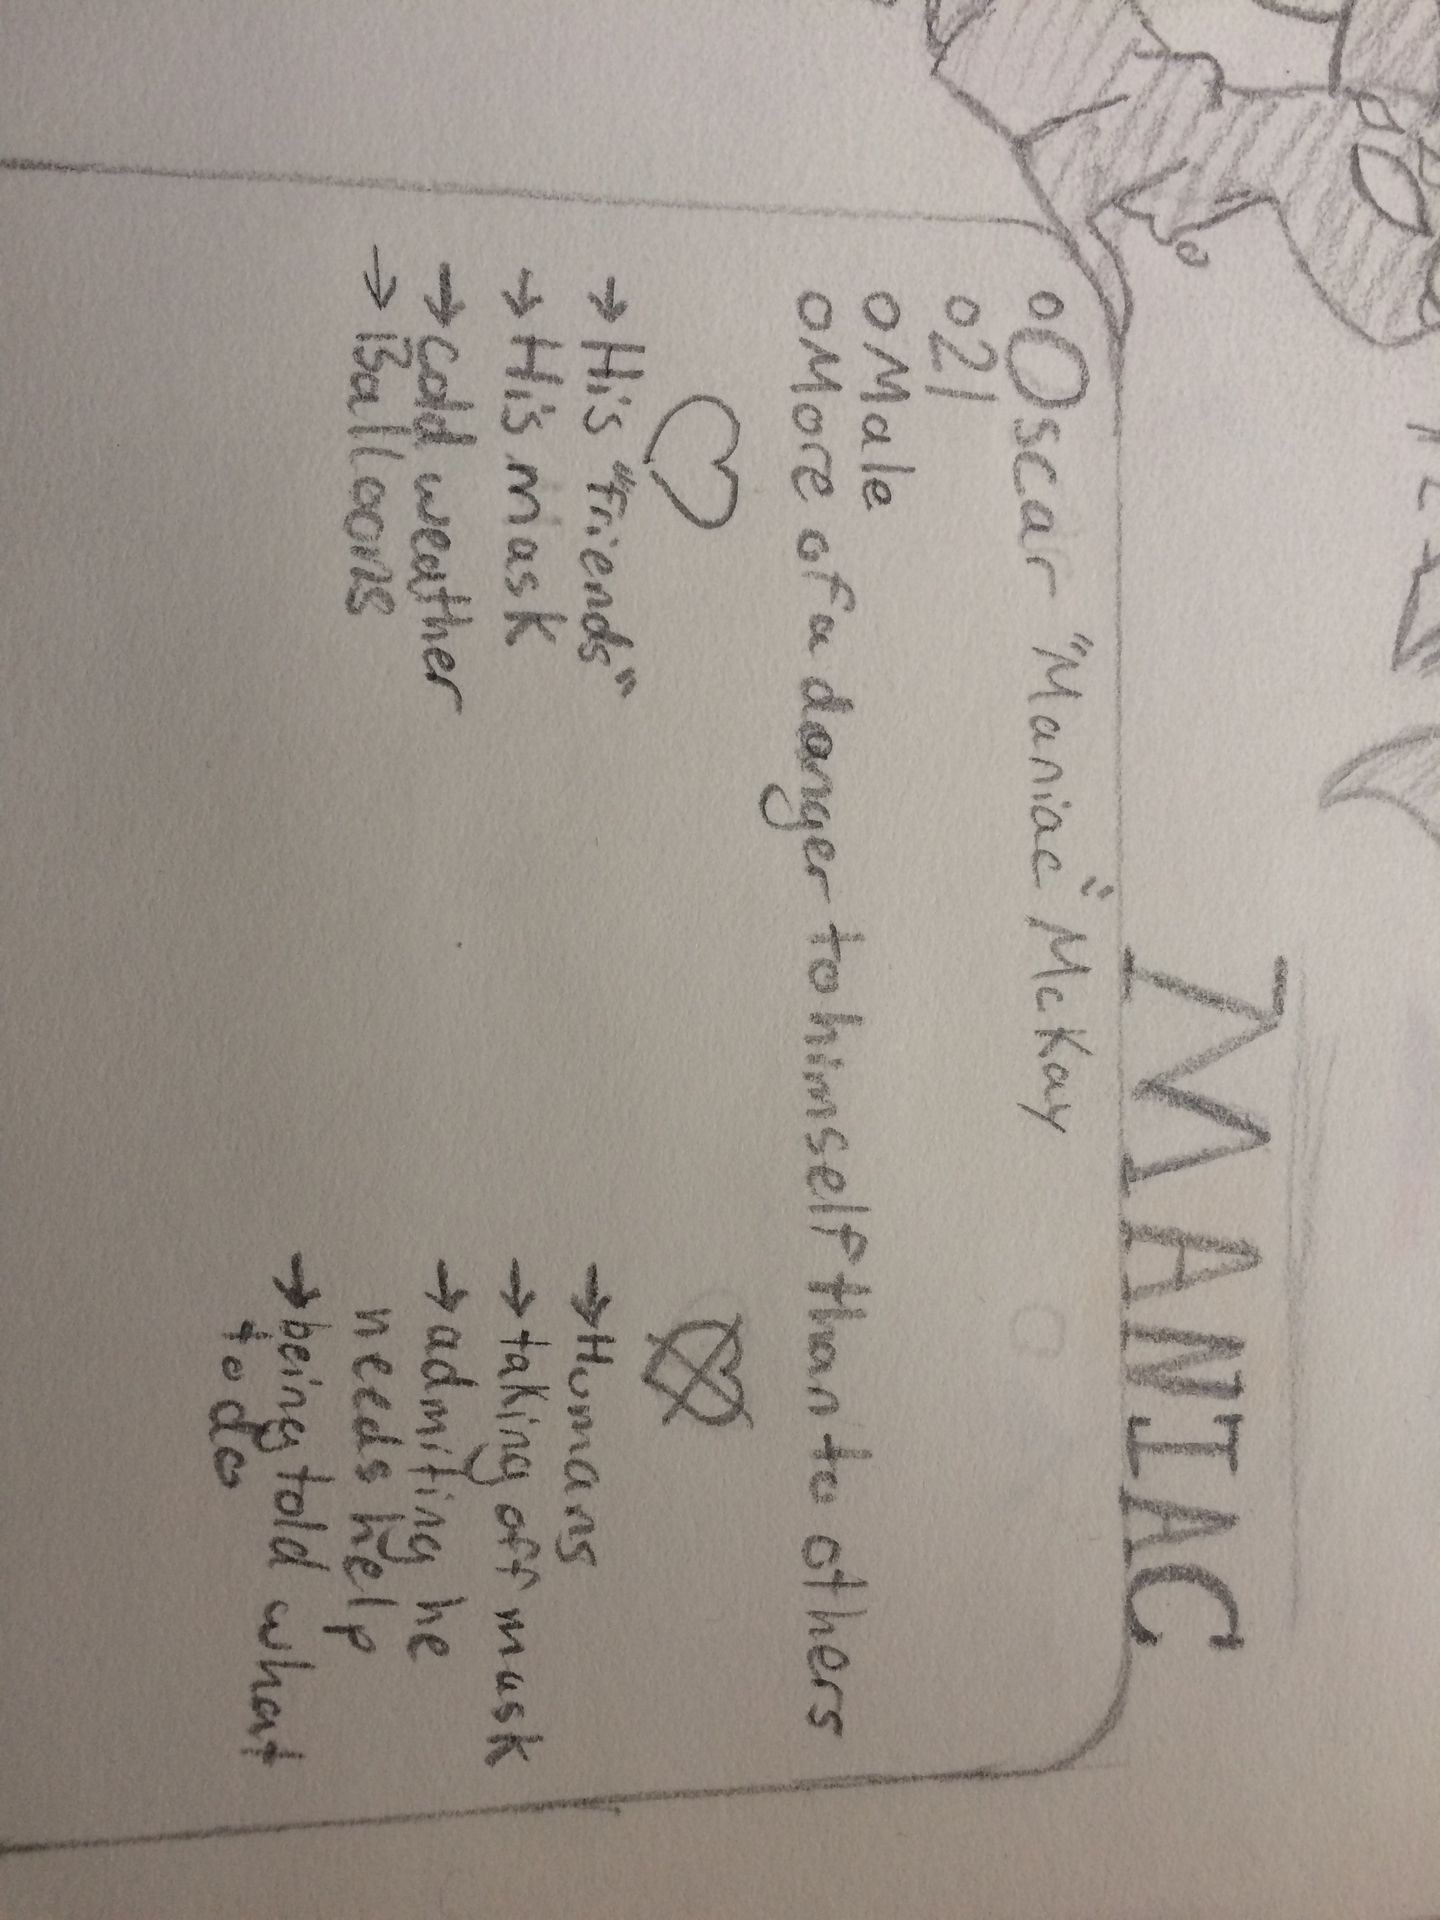 MANIAC
Oscar "Maniac" McKay
21
Male
More of a danger to himself than to others
→ His "Friends"
→ His mask
→ cold weather
→ Balloons
→ Humans
→ taking off mask
→ admiting he
needs help
→ being told what
to do